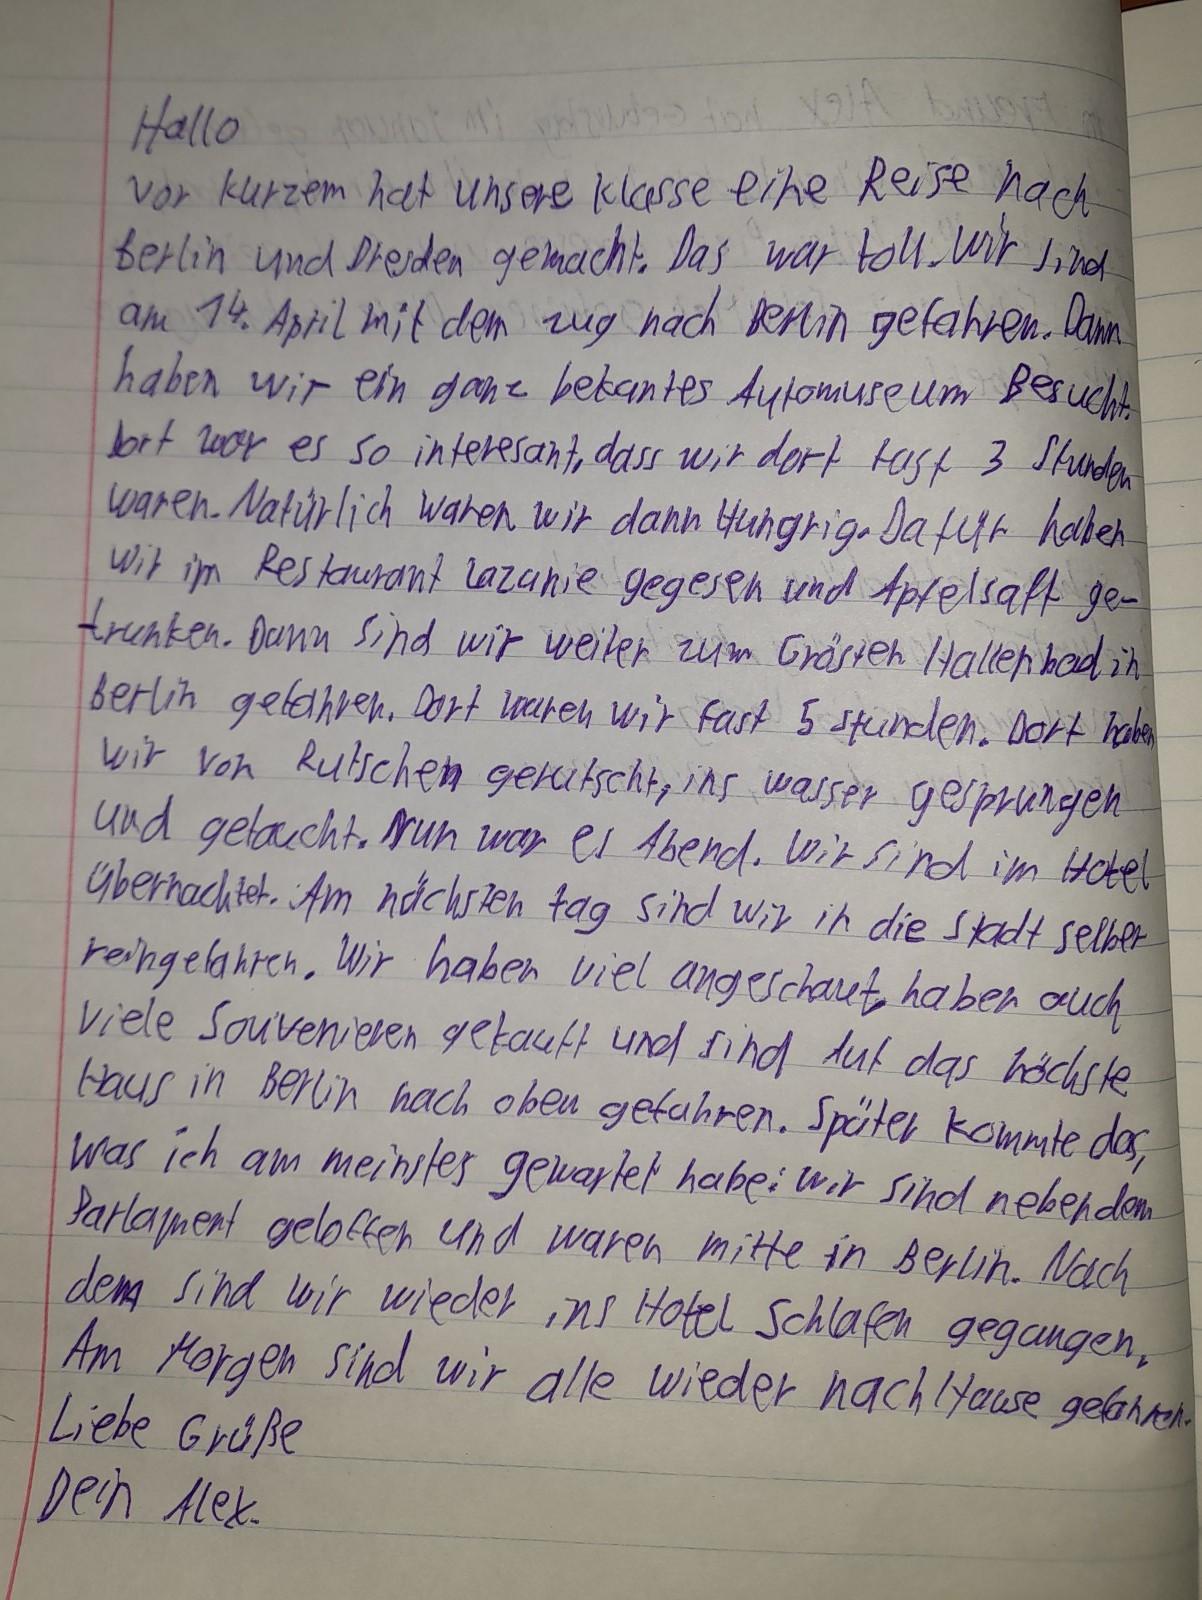 Hallo
vor kurzem hat unsere klasse eine Reise nach
Berlin und Dresden gemacht. Das war toll. Wir sind
am 14. April mit dem zug nach Berlin gefahren. Dann
haben wir ein ganz bekantes Automuseum Besucht.
Dort war es so interesant, dass wir dort fast 3 Stunden
waren. Natürlich waren wir dann Hungrig. Dafür haben
wir im Restaurant Lazanie gegesen und Apfelsaft ge-
trunken. Dann sind wir weiter zum Grösten Hallenbad in
Berlin gefahren. Dort waren wir fast 5 stunden. Dort haben
wir von Rutschen gerutscht, ins wasser gesprungen
und getaucht. Nun war es Abend. Wir sind im Hotel
übernachtet. Am nächsten tag sind wir in die Stadt selber
reingefahren. Wir haben viel angeschaut, haben auch
viele Souvenieren gekauft und sind Auf das höchste
Haus in Berlin nach oben gefahren. Später kommte das,
was ich am meinstes gewartet habe: wir sind neben dem
Parlament geloffen und waren mitte in Berlin. Nach
dem sind wir wieder ins Hotel Schlafen gegangen.
Am Morgen sind wir alle wieder nach Hause gefahren.
Liebe Grüße
Dein Alex.